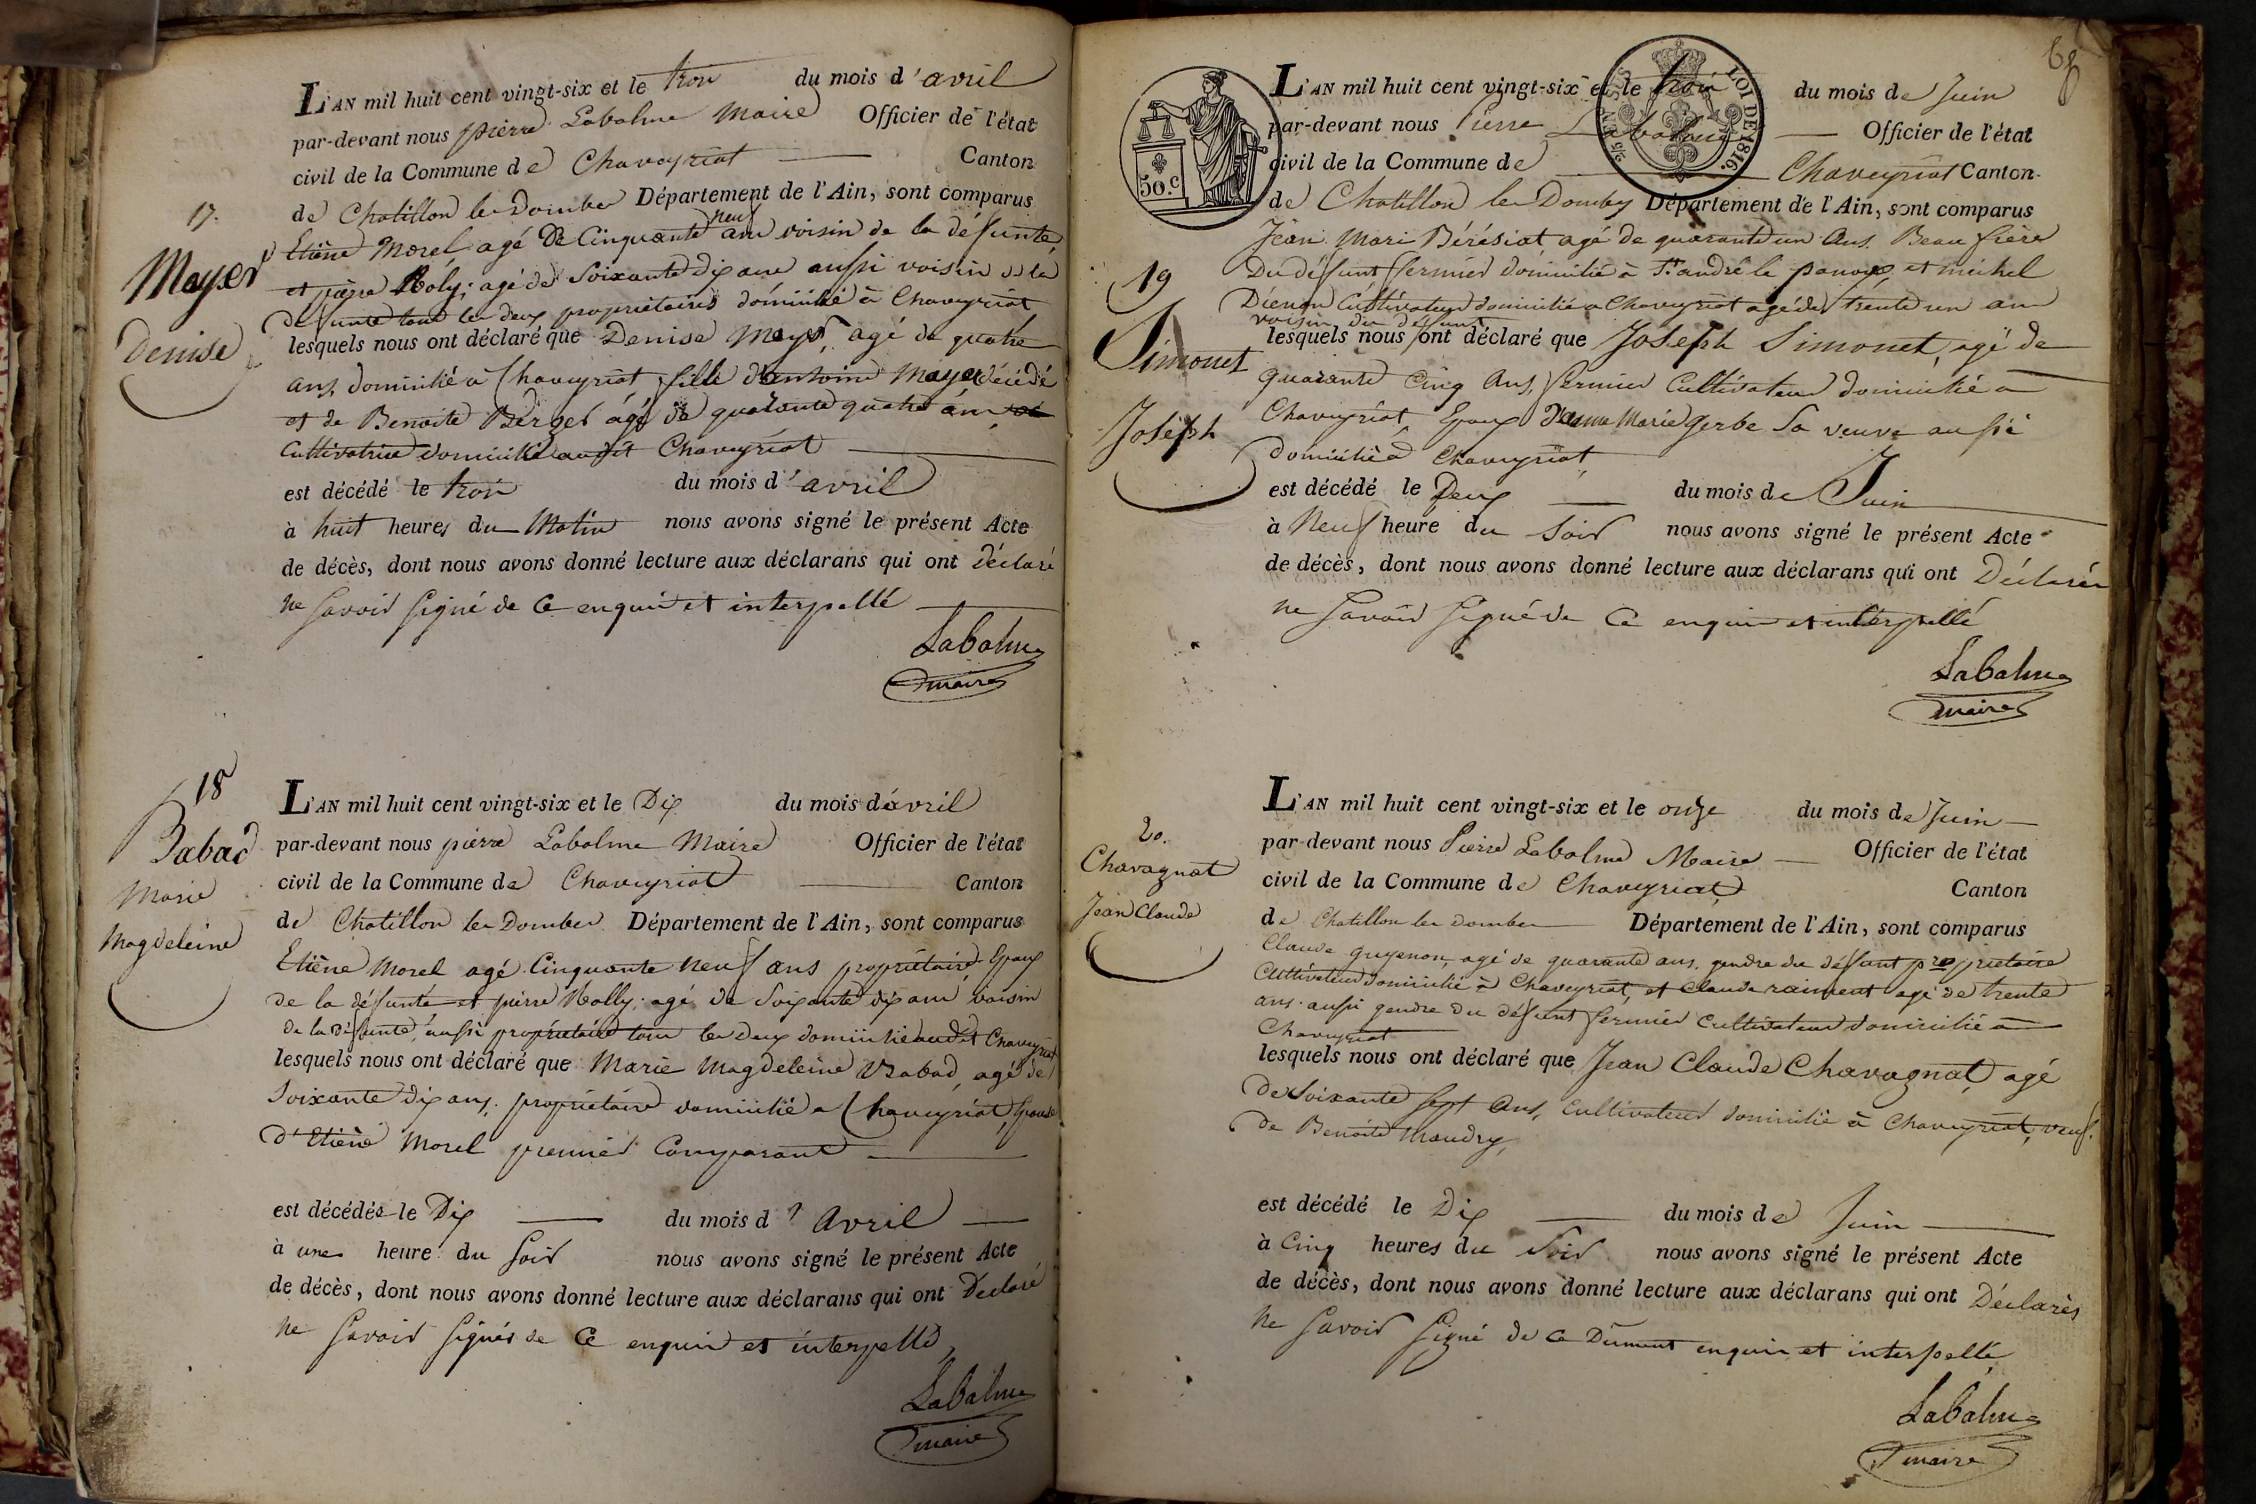 17.
Mayer
Denise
L'AN mil huit cent vingt-six et le trois du mois d'avril
par-devant nous pierre Labalme Maire Officier de l'état
civil de la Commune de Chaveyriat Canton
de Chatillon les Dombes Département de l'Ain, sont comparus
Etiène Morel, agé De Cinquante neuf ans voisin de la défunte,
et pierre Roly; agé de Soixante dix ans aussi voisin de la
defunte tous les deux propriétaires domicilié à Chaveyriat
lesquels nous ont déclaré que Denise Mayer, agé de quatre
ans, domicilié à Chaveyriat fille d'antoine Mayer décédé
et de Benoite Berger agé de quarante quatre ans,
Cultivatrice domicilié audit Chaveyriat
est décédé le trois du mois d'avril
à huit heures du Matin nous avons signé le présent Acte
de décès, dont nous avons donné lecture aux déclarans qui ont Déclaré
ne Savoir Signé de Ce enquis et interpellé
Labalme
maire
18
Babad
Marie
Magdeleine
L'AN mil huit cent vingt-six et le Dix du mois d'avril
par-devant nous pierre Labalme Maire Officier de l'état
civil de la Commune de Chaveyriat Canton
de Chatillon les Dombes Département de l'Ain, sont comparus
Etiène Morel agé Cinquante Neuf ans propriétaire Epoux
de la défunte et pierre Rolly; agé de Soixante dix ans voisin
de la Défunte, aussi propriétaire tous les Deux domicilié audit Chaveyriat
lesquels nous ont déclaré que Marie Magdeleine Babad, agé de
Soixante dix ans, propriétaire domicilié a Chaveyriat, Epouse
d'Etiène Morel premier Comparant
est décédée le Dix du mois d'Avril
à une heure du Soir nous avons signé le présent Acte
de décès, dont nous avons donné lecture aux déclarans qui ont Declaré
ne Savoir Signés de Ce enquis et interpellé,
Labalme
maire
68
50.c
LOI DE 1816.
L'AN mil huit cent vingt-six et le trois du mois de Juin
par-devant nous Pierre Labalme Officier de l'état
civil de la Commune de Chaveyriat Canton
de Chatillon les Dombes Département de l'Ain, sont comparus
19
Simonet
Joseph
Jean Mari Bérésiat, agé de quarante un Ans. Beau frère
Du défunt fermier domicilié à St. andré le panoux, et michel
Dienon Cultivateur domicilié a Chaveyriat agé de trente un ans
voisin du défunt
lesquels nous ont déclaré que Joseph Simonet, agé de
quarante Cinq Ans, fermier Cultivateur domicilié a
Chaveyriat, Epoux D'anne Marie Gerbe Sa veuve aussi
domicilié à Chaveyriat,
est décédé le Deux du mois de Juin
à Neuf heure du Soir nous avons signé le présent Acte
de décès, dont nous avons donné lecture aux déclarans qui ont Déclarés
ne Savoir Signé de Ce enquis et interpellé
Labalme
maire
20.
Chavagnat
Jean Claude
L'AN mil huit cent vingt-six et le onze du mois de Juin
par-devant nous Pierre Labalme Maire Officier de l'état
civil de la Commune de Chaveyriat Canton
de Chatillon les Dombes Département de l'Ain, sont comparus
Claude guyenon, agé de quarante ans, gendre du défunt propriétaire
Cultivateur domicilié à Chaveyriat, et Claude raiment agé de trente
ans aussi gendre du défunt fermier Cultivateur domicilié à
Chaveyriat
lesquels nous ont déclaré que Jean Claude Chavagnat, agé
de Soixante Sept Ans, Cultivateur domicilié à Chaveyriat, veuf.
de Benoite Maudry,
est décédé le Dix du mois de Juin
à Cinq heures du Soir nous avons signé le présent Acte
de décès, dont nous avons donné lecture aux déclarans qui ont Déclarés
ne Savoir Signé de Ce Dûment enquis et interpellé
Labalme
maire